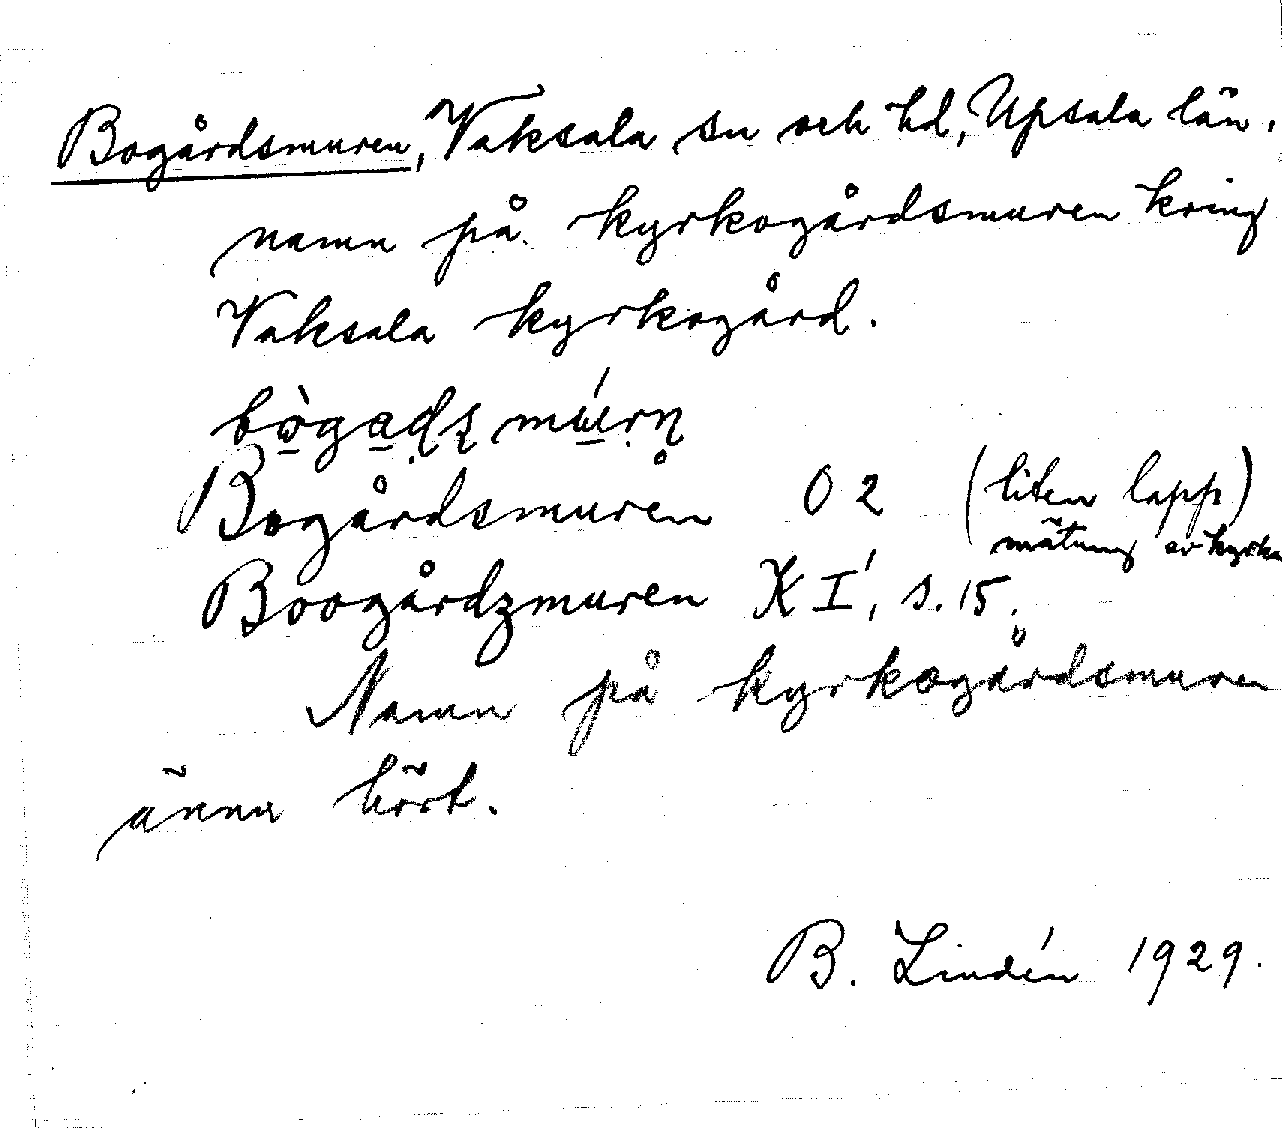 Bogårdsmuren, Vaksala sn och hd, Upsala län.
namn på kyrkogårdsmuren kring
Vaksala kyrkogård.
bògads múrn
Bogårdsmuren O 2 (liten lapp)
mätning av kyrka
Boogårdzmuren K I', s. 15.
Namn på kyrkogårdsmuren
ännu hört.
B. Lindén 1929.